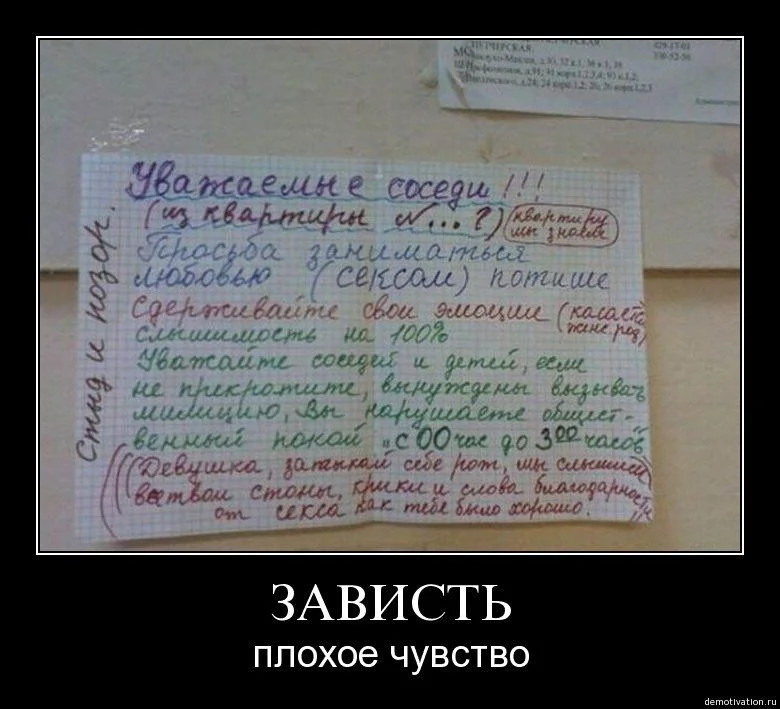 ПЕЧЕРСКАЯ,
Уважаемые соседи!!!
(из квартиры №...?) (квартиру мы знаем)
Просьба заниматься
любовью (сексом) потише
Сдерживайте свои эмоции (касается женс. род)
слышимость на 100%
Уважайте соседей и детей, если
не прекратите, вынуждены вызывать
милицию, Вы нарушаете общест-
венный покой с 00 час до 3 00 часов
(((Девушка, затыкай себе рот, мы слышим
все твои стоны, крики и слова благодарности
от секса как тебе было хорошо.)))
Стыд и позор.
ЗАВИСТЬ
плохое чувство
demotivation.ru